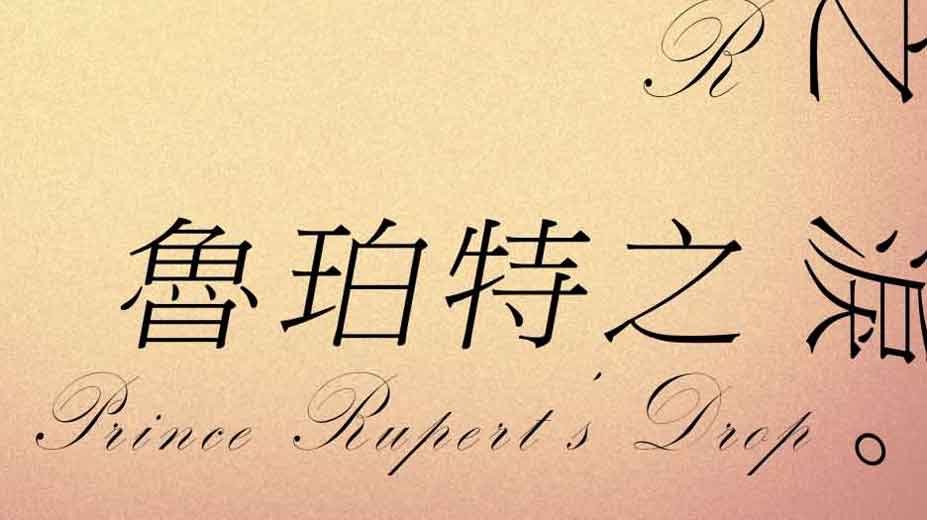 R 之
魯珀特之淚。
Prince Rupert's Drop